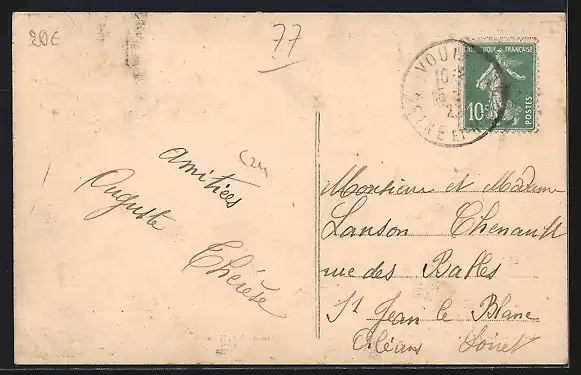 20€
77
VOU
10
SEINE ET
RÉPUBLIQUE FRANÇAISE
10c
POSTES
Amitiées
Auguste
Thérèse
Monsieur et Madame
Lanson Chenault
rue des Balles
St Jean le Blanc
Orléans Loiret